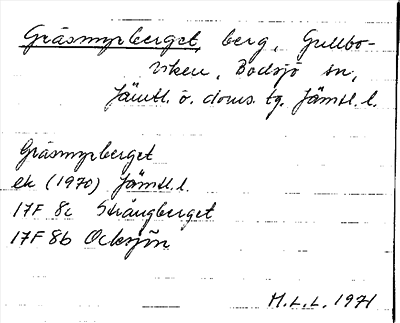 Gråsmyrberget, berg, Gullbo-
viken, Bodsjö sn,
Jämtl. ö. doms. tg. Jämtl. l.
Gråsmyrberget
ek (1970) Jämtl. l.
17F 8c Strångberget
17F 8b Ocksjön
M.L.L. 1971